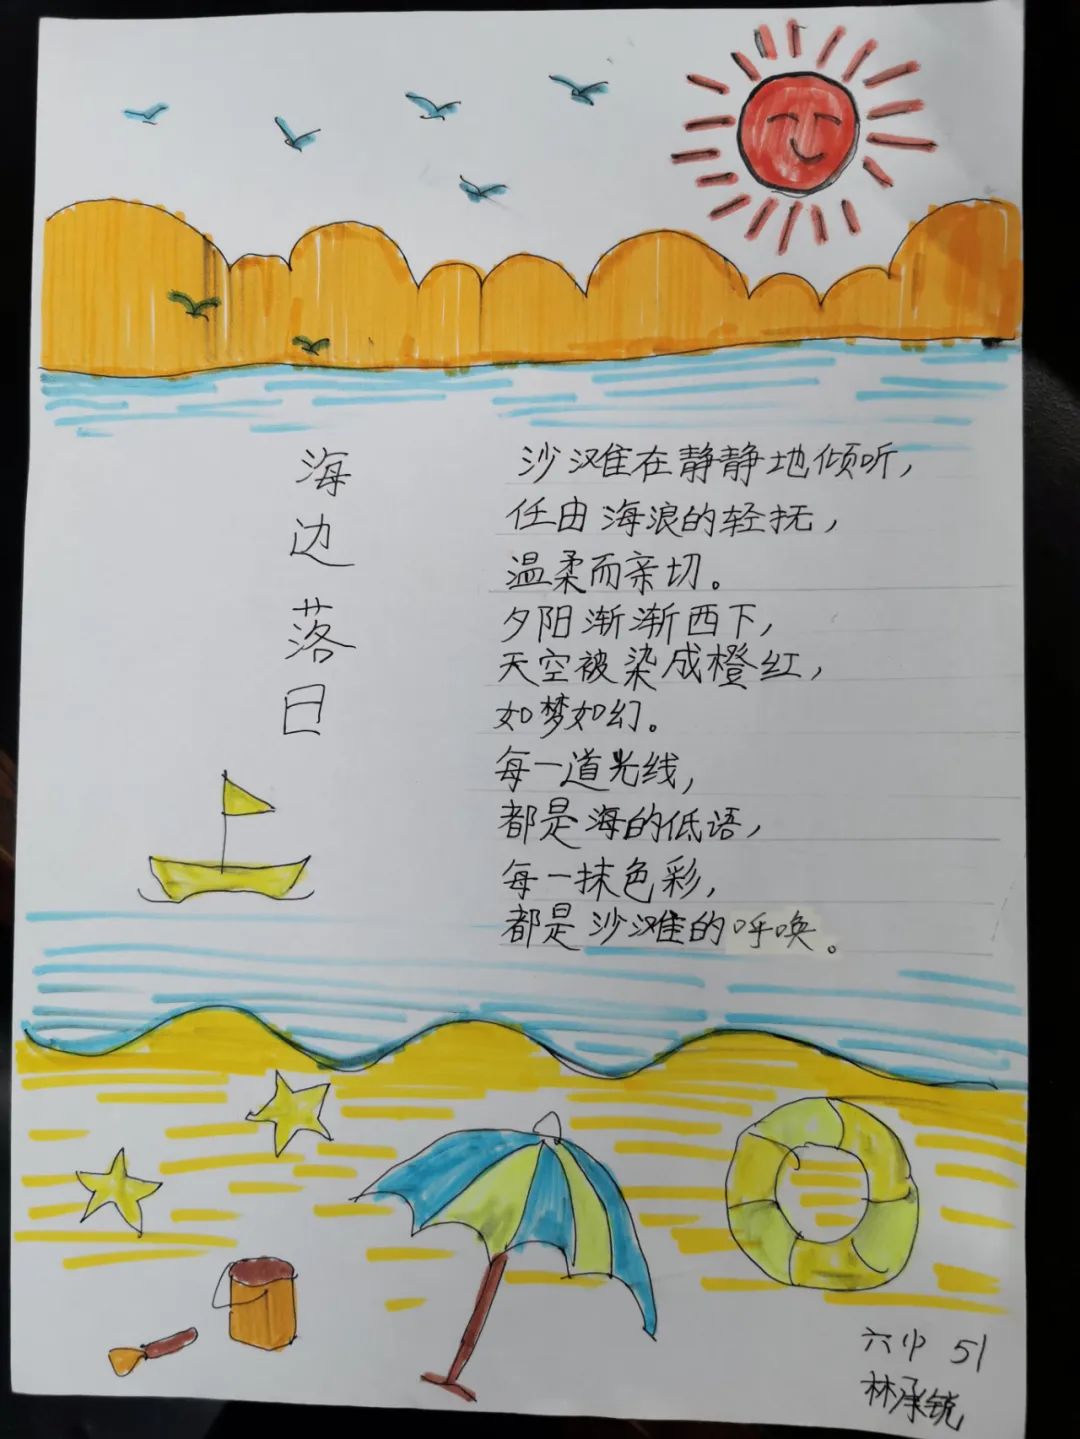 海边落日
沙滩在静静地倾听，
任由海浪的轻抚，
温柔而亲切。
夕阳渐渐西下，
天空被染成橙红，
如梦如幻。
每一道光线，
都是海的低语，
每一抹色彩，
都是沙滩的呼唤。
六 51
林承锐